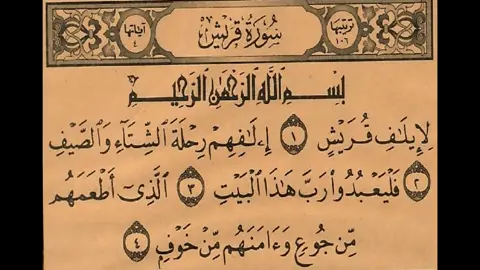 ترتيبها ١٠٦ سورة قريش آياتها ٤
بسم الله الرحمن الرحيم
لِإِيلَٰفِ قُرَيْشٍ ١ إِۦلَٰفِهِمْ رِحْلَةَ ٱلشِّتَآءِ وَٱلصَّيْفِ
٢ فَلْيَعْبُدُوا۟ رَبَّ هَٰذَا ٱلْبَيْتِ ٣ ٱلَّذِىٓ أَطْعَمَهُم
مِّن جُوعٍ وَءَامَنَهُم مِّنْ خَوْفٍۭ ٤